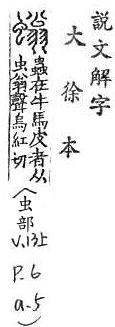 說文解字
大徐本
𧒒 蟲在牛馬皮者从
虫翁聲烏紅切
(虫部
V.13上
P.6
a.5)